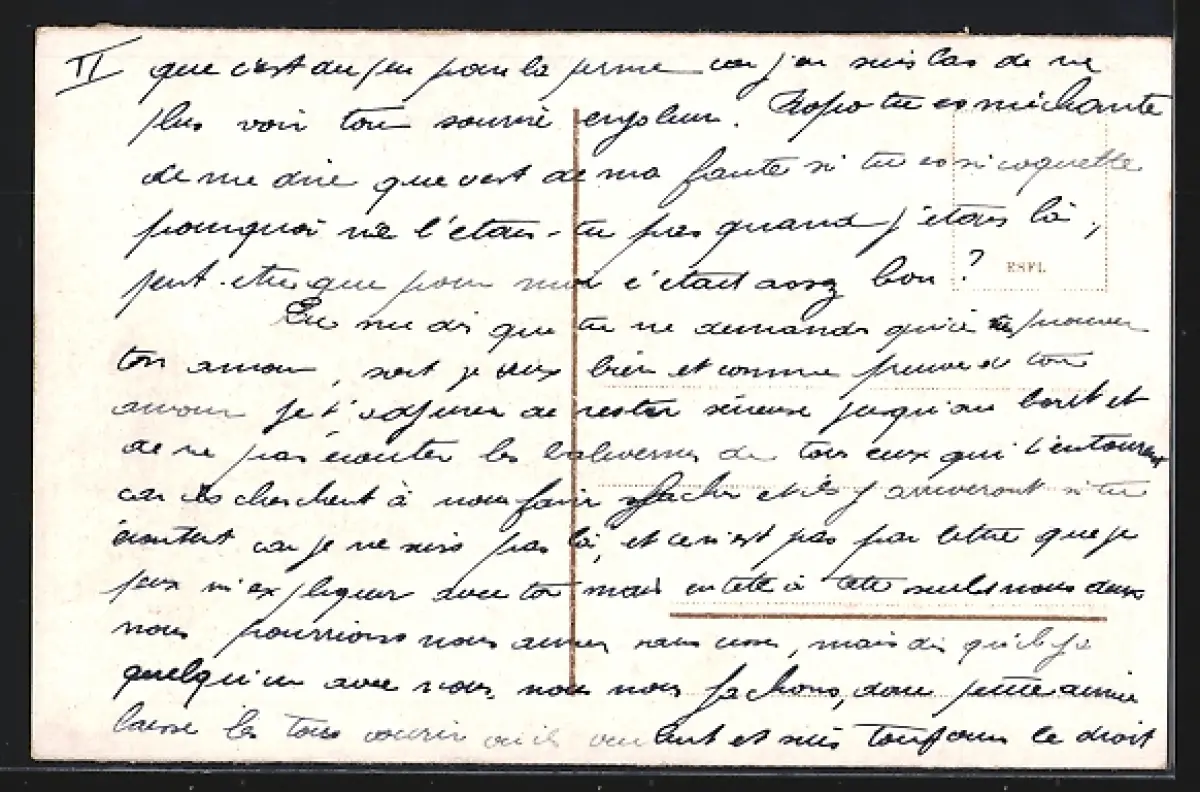 II que c'est du peu pour la car j'en suis las de ne
plus voir ton sourire enjoleur. tu es méchante
de me dire que c'est de ma faute si tu es si coquette
pourquoi ne l'étais-tu pas quand j'étais là,
peut-etre que pour moi c'était assez bon?
ESFL
Tu me dis que tu ne demandes qu'à prouver
ton amour, soit je veux bien et comme preuve de ton
amour je t'adjure de rester sérieuse jusqu'au bout et
de ne pas écouter les balivernes de tous ceux qui t'entourent
car ils cherchent à nous faire facher et ils y arriveront si tu
écoutes car je ne suis pas là, et ce n'est pas par lettre que je
peux m'expliquer avec toi mais en tête à tête seuls nous deux
nous pourrions nous aimer sans cesse, mais dès qu'il y a
quelqu'un avec nous, nous nous fachons, donc petite amie
laisse les tous courir où ils veulent et suis toujours le droit